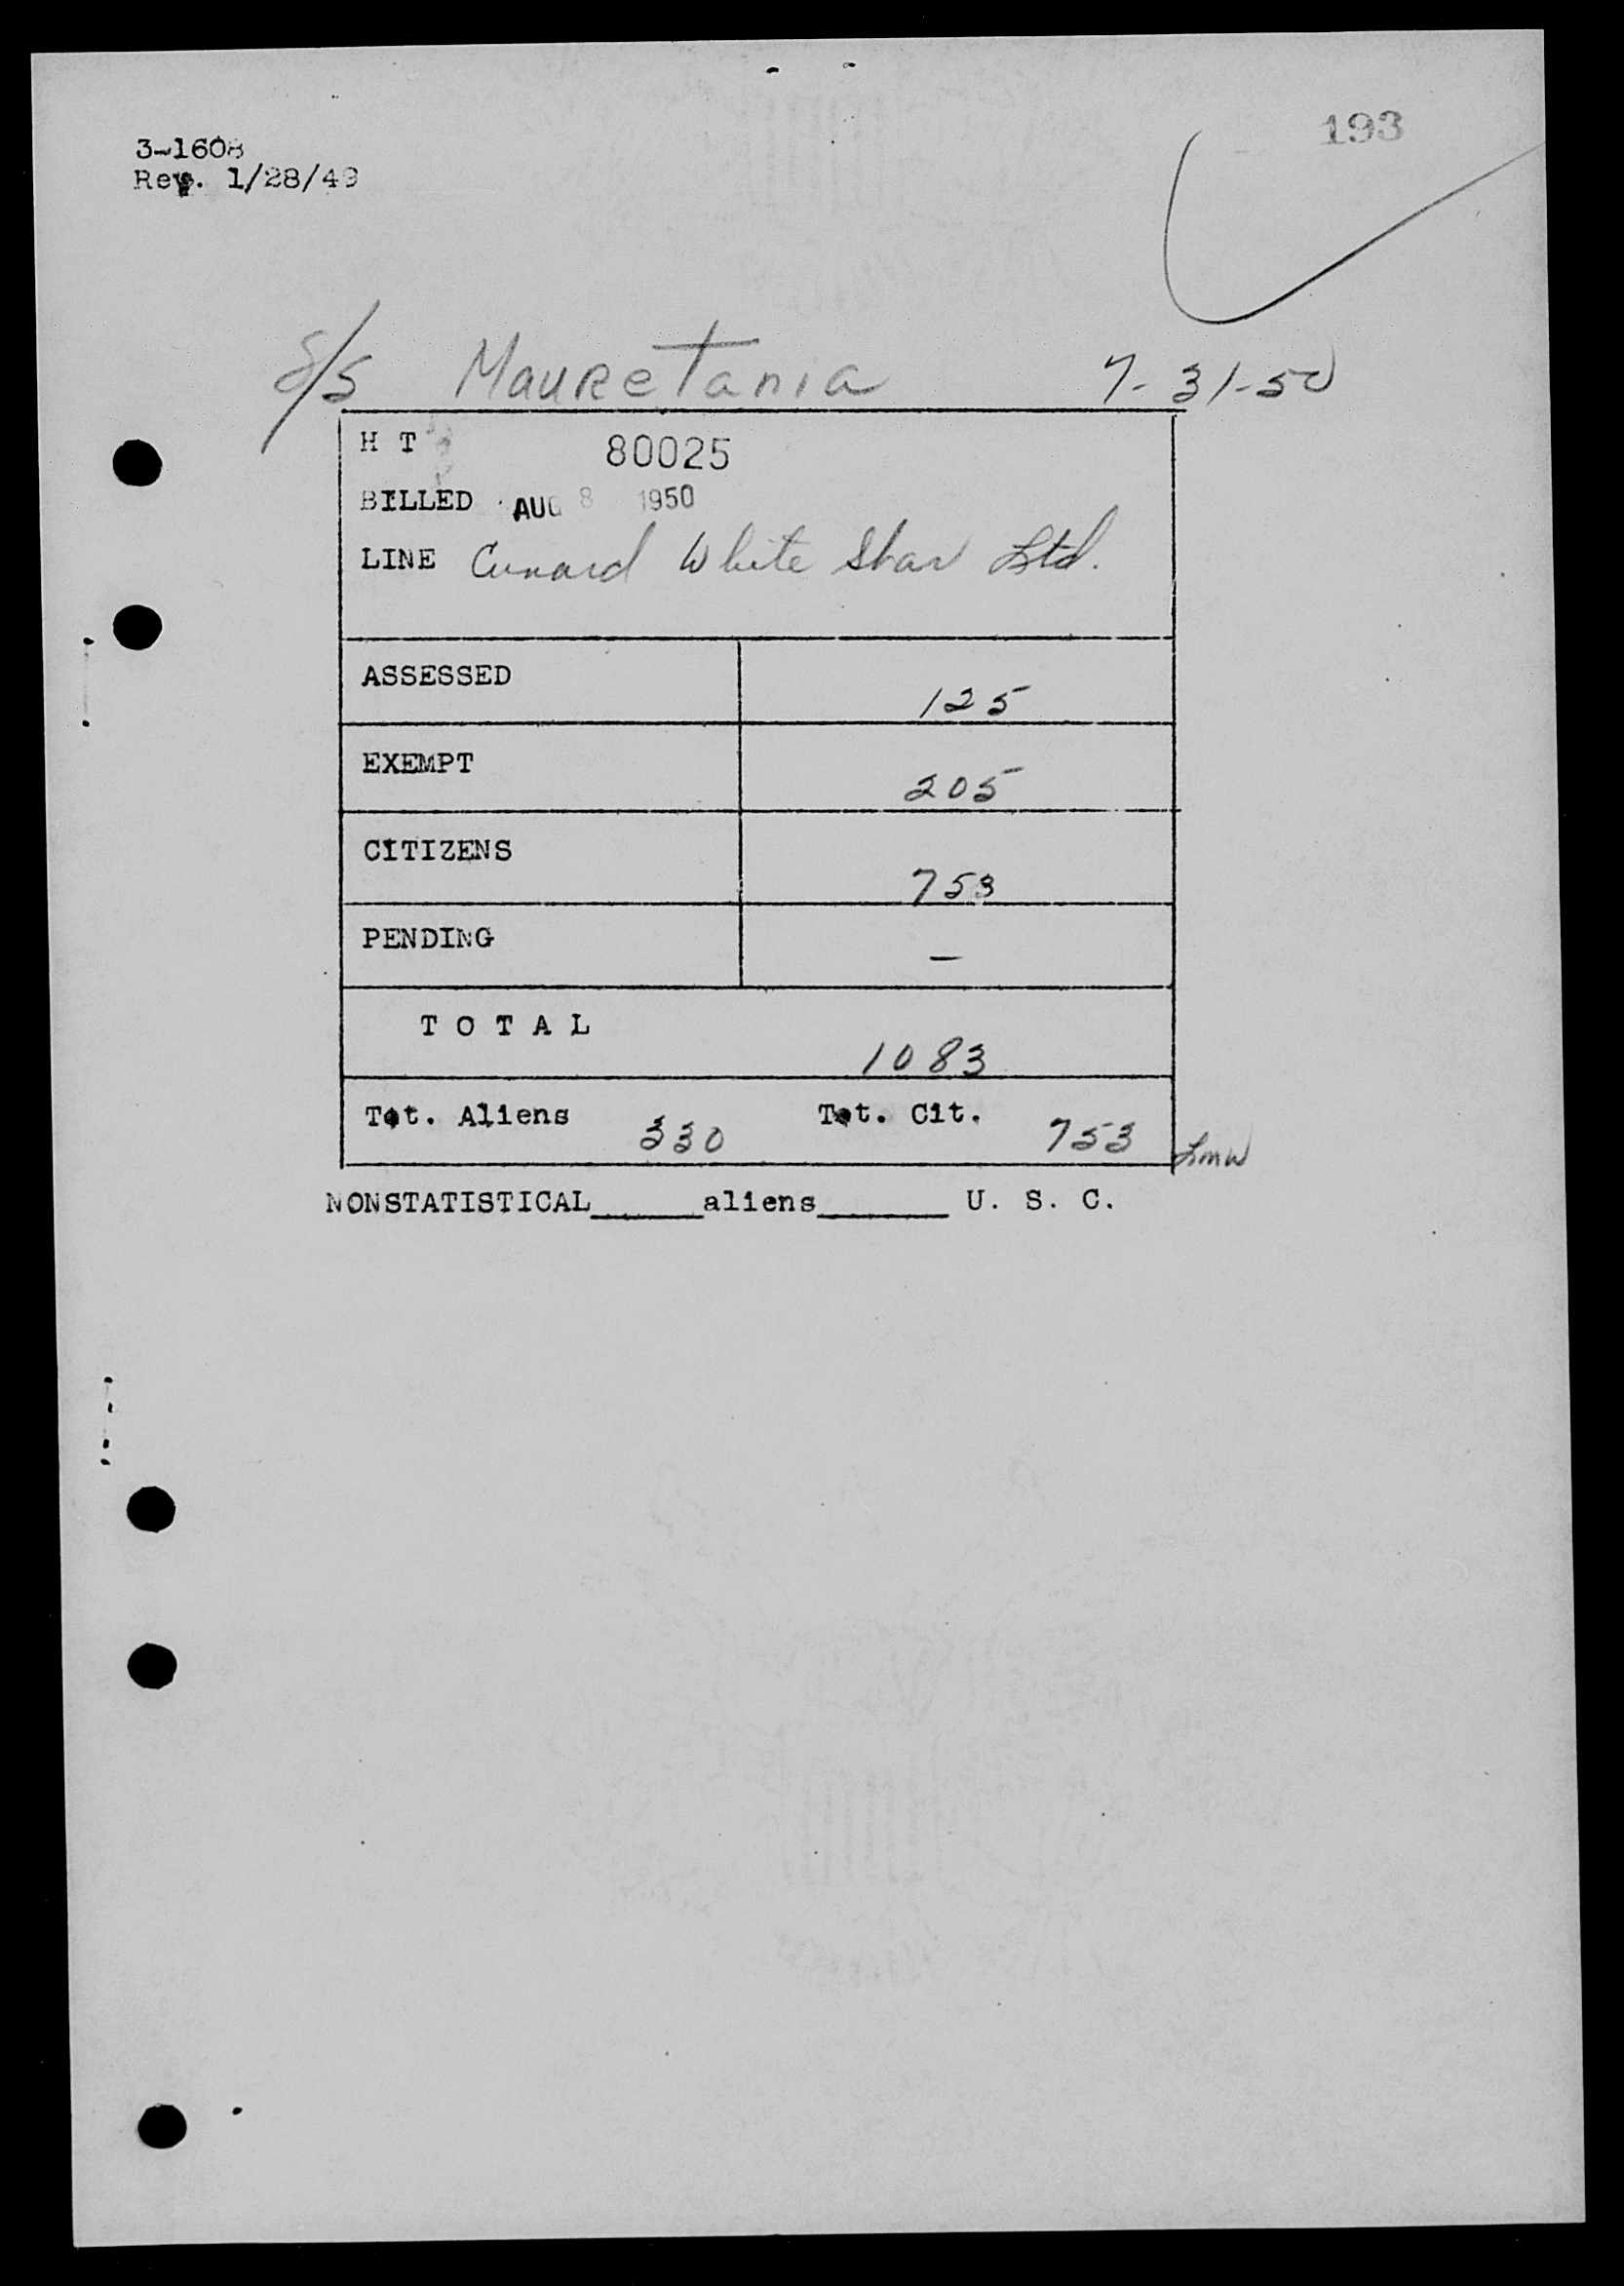 193
3-1608
Rev. 1/28/49
S/S Mauretania 7-31-50
H T 80025
BILLED AUG 8 1950
LINE Cunard White Star Ltd.
ASSESSED 125
EXEMPT 205
CITIZENS 753
PENDING —
T O T A L 1083
Tot. Aliens 330 Tot. Cit. 753 LMW
NONSTATISTICAL______aliens_______ U. S. C.